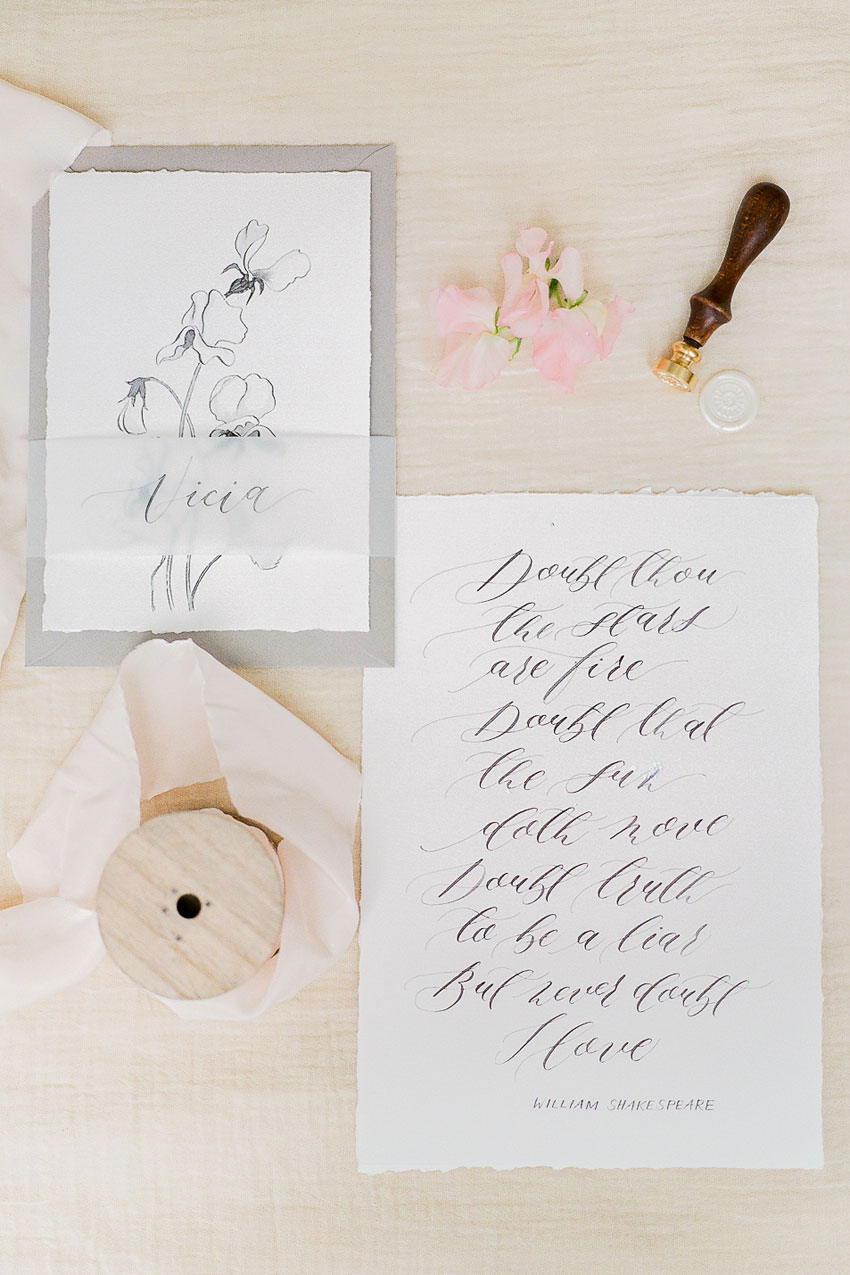 Vicia
Doubt thou
the stars
are fire
Doubt that
the sun
doth move
Doubt truth
to be a liar
But never doubt
I love
WILLIAM SHAKESPEARE